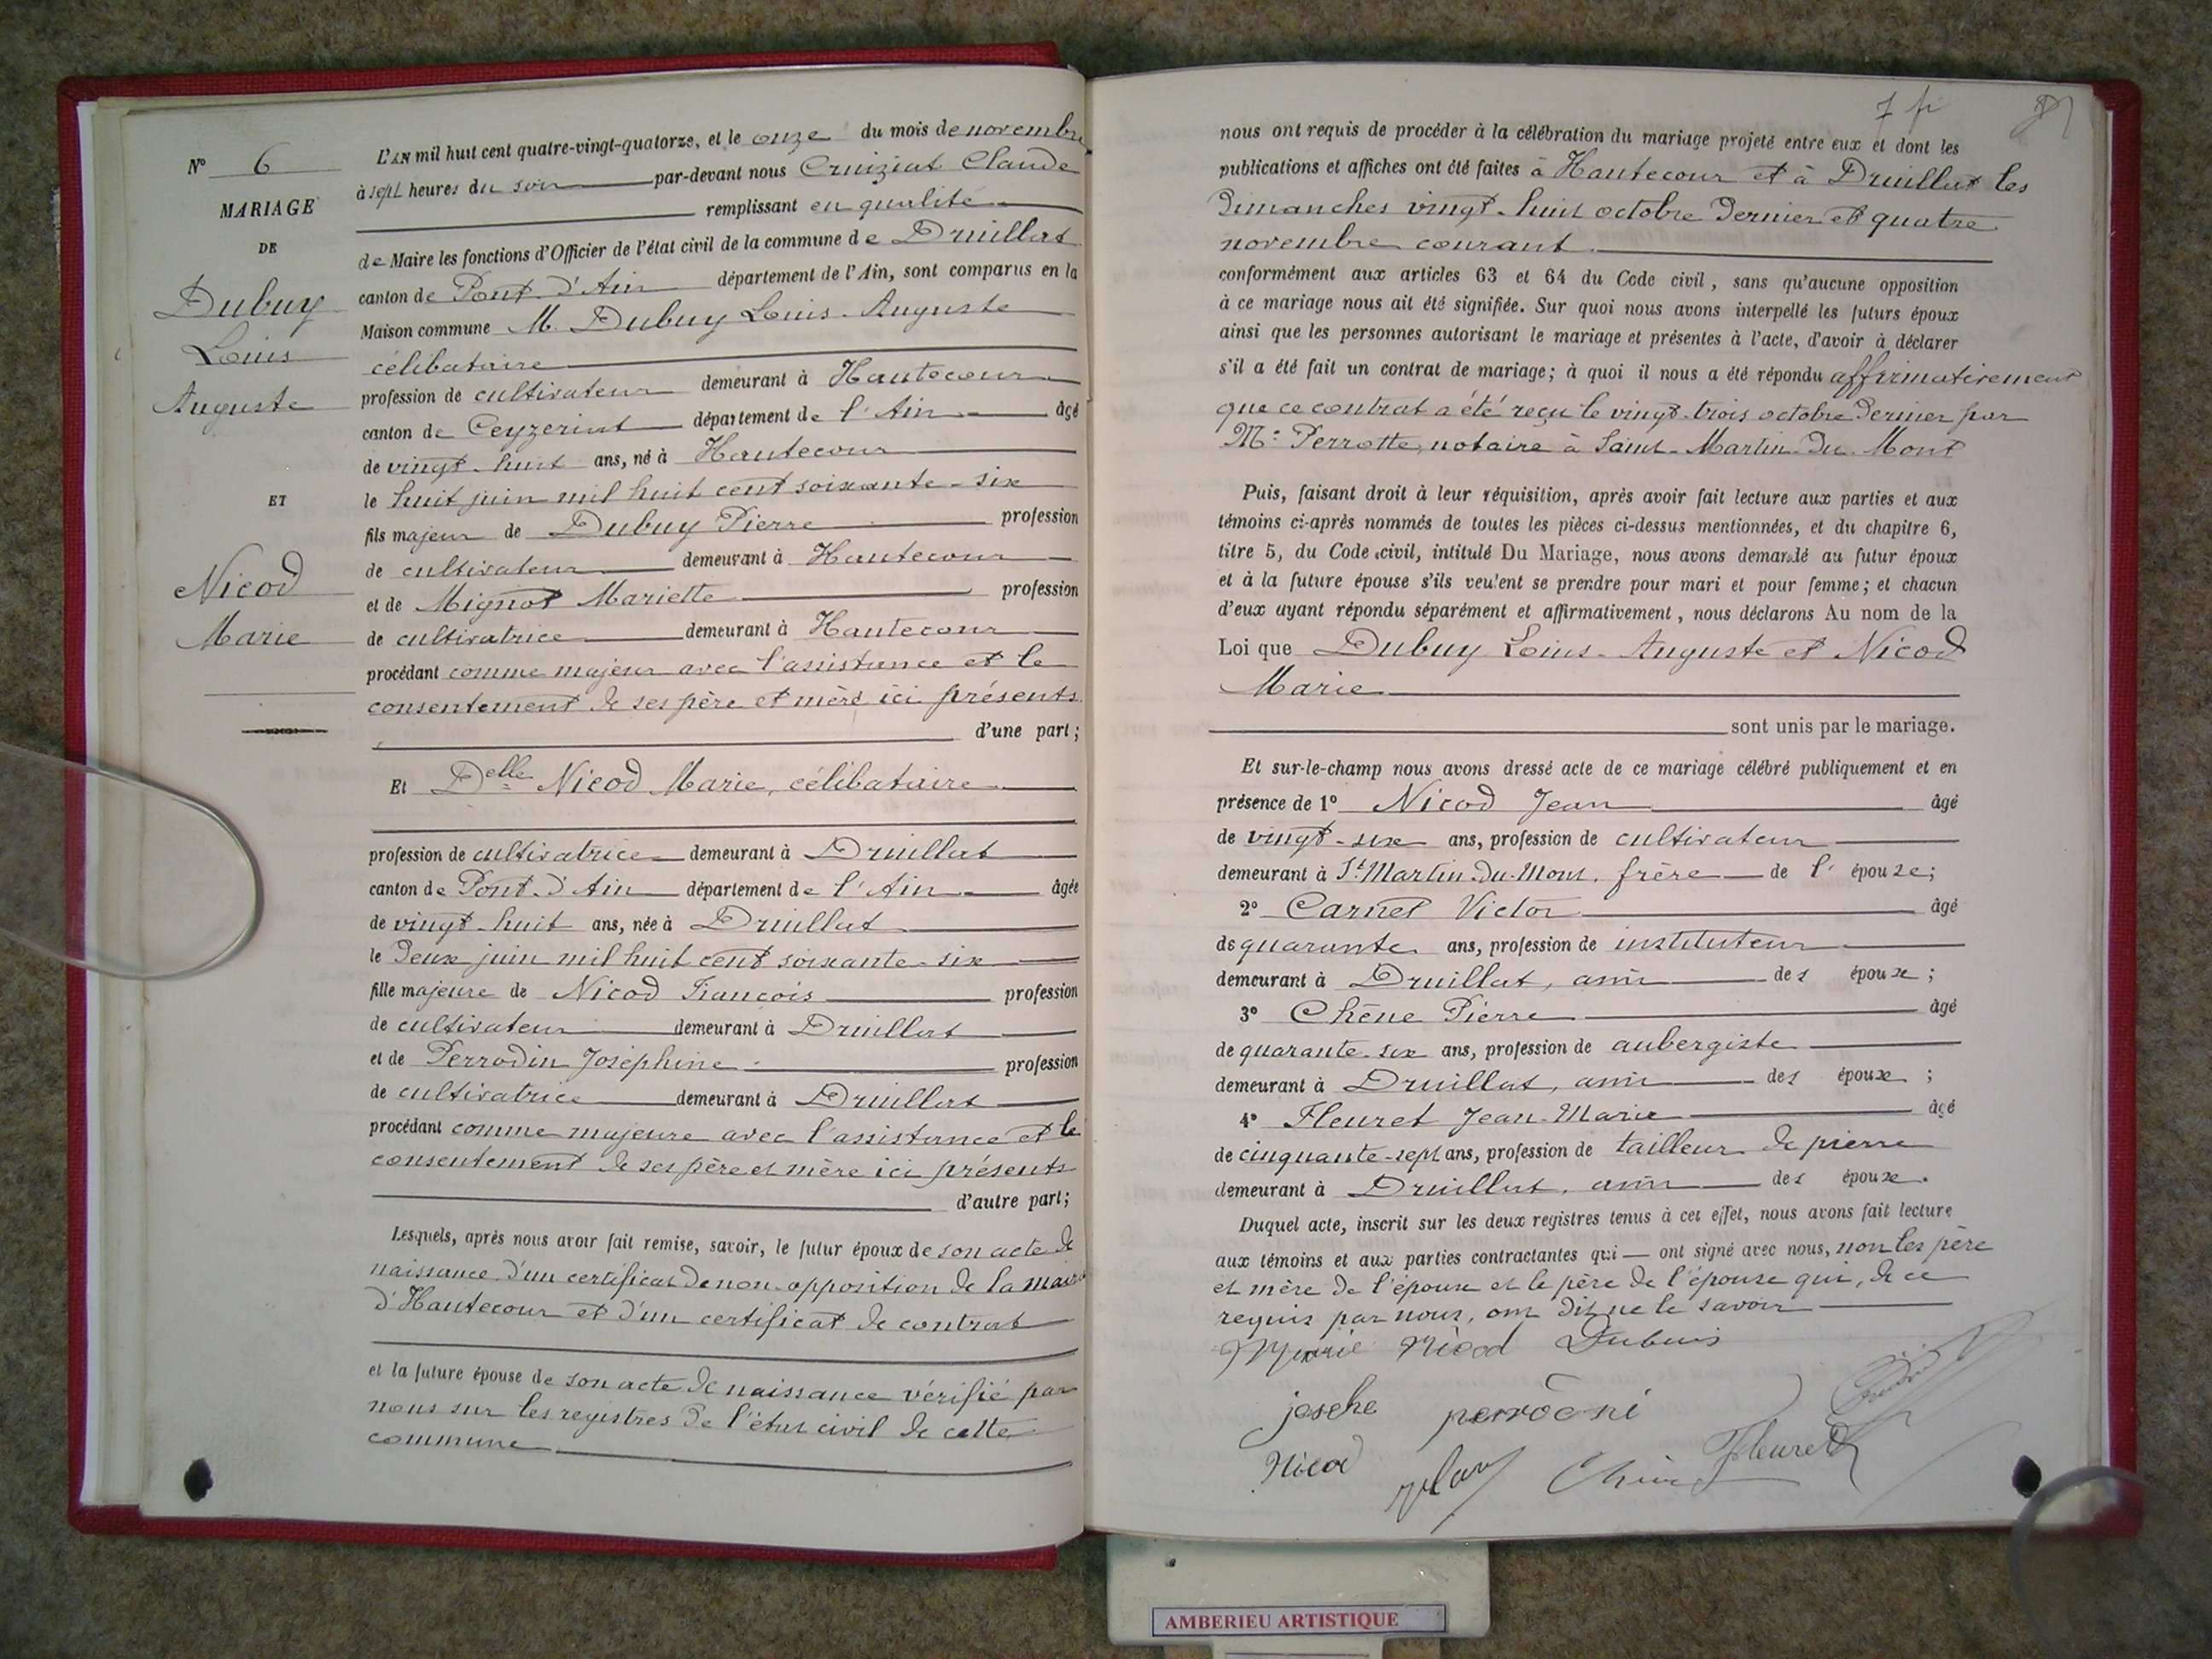 N° 6
MARIAGE
DE
Dubuy
Louis
Auguste
ET
Nicod
Marie
L'AN mil huit cent quatre-vingt-quatorze, et le onze du mois de novembre
à sept heures du soir par-devant nous Cruiziat Claude
remplissant en qualité
de Maire les fonctions d'Officier de l'état civil de la commune de Druillat
canton de Pont-d'Ain département de l'Ain, sont comparus en la
Maison commune M. Dubuy Louis-Auguste
célibataire
profession de cultivateur demeurant à Hautecour
canton de Ceyzeriat département de l'Ain âgé
de vingt-huit ans, né à Hautecour
le huit juin mil huit cent soixante-six
fils majeur de Dubuy Pierre profession
de cultivateur demeurant à Hautecour
et de Mignot Mariette profession
de cultivatrice demeurant à Hautecour
procédant comme majeur avec l'assistance et le
consentement de ses père et mère ici présents
d'une part;
Et Delle Nicod Marie, célibataire
profession de cultivatrice demeurant à Druillat
canton de Pont-d'Ain département de l'Ain âgée
de vingt-huit ans, née à Druillat
le deux juin mil huit cent soixante-six
fille majeure de Nicod François profession
de cultivateur demeurant à Druillat
et de Perrodin Joséphine profession
de cultivatrice demeurant à Druillat
procédant comme majeure avec l'assistance et le
consentement de ses père et mère ici présents
d'autre part;
Lesquels, après nous avoir fait remise, savoir, le futur époux de son acte de
naissance d'un certificat de non-opposition de la mairie
d'Hautecour et d'un certificat de contrat
et la future épouse de son acte de naissance vérifié par
nous sur les registres de l'état civil de cette
commune
nous ont requis de procéder à la célébration du mariage projeté entre eux et dont les
publications et affiches ont été faites à Hautecour et à Druillat les
Dimanches vingt-huit octobre dernier et quatre
novembre courant
conformément aux articles 63 et 64 du Code civil, sans qu'aucune opposition
à ce mariage nous ait été signifiée. Sur quoi nous avons interpellé les futurs époux
ainsi que les personnes autorisant le mariage et présentes à l'acte, d'avoir à déclarer
s'il a été fait un contrat de mariage; à quoi il nous a été répondu affirmativement
que ce contrat a été reçu le vingt-trois octobre dernier par
Me Perrotte, notaire à Saint-Martin-du-Mont
Puis, faisant droit à leur réquisition, après avoir fait lecture aux parties et aux
témoins ci-après nommés de toutes les pièces ci-dessus mentionnées, et du chapitre 6,
titre 5, du Code civil, intitulé Du Mariage, nous avons demandé au futur époux
et à la future épouse s'ils veulent se prendre pour mari et pour femme; et chacun
d'eux ayant répondu séparément et affirmativement, nous déclarons Au nom de la
Loi que Dubuy Louis-Auguste et Nicod
Marie
sont unis par le mariage.
Et sur-le-champ nous avons dressé acte de ce mariage célébré publiquement et en
présence de 1° Nicod Jean âgé
de vingt-six ans, profession de cultivateur
demeurant à St Martin-du-Mont, frère de l'épouse;
2° Carnet Victor âgé
de quarante ans, profession de instituteur
demeurant à Druillat, ami des époux;
3° Chêne Pierre âgé
de quarante-six ans, profession de aubergiste
demeurant à Druillat, ami des époux;
4° Fleuret Jean-Marie âgé
de cinquante-sept ans, profession de tailleur de pierre
demeurant à Druillat, ami des époux.
Duquel acte, inscrit sur les deux registres tenus à cet effet, nous avons fait lecture
aux témoins et aux parties contractantes qui — ont signé avec nous, non les père
et mère de l'époux et le père de l'épouse qui, de ce
requis par nous, ont dit ne le savoir
Marie Nicod Dubuis
Nicod Chêne Fleuret
AMBERIEU ARTISTIQUE